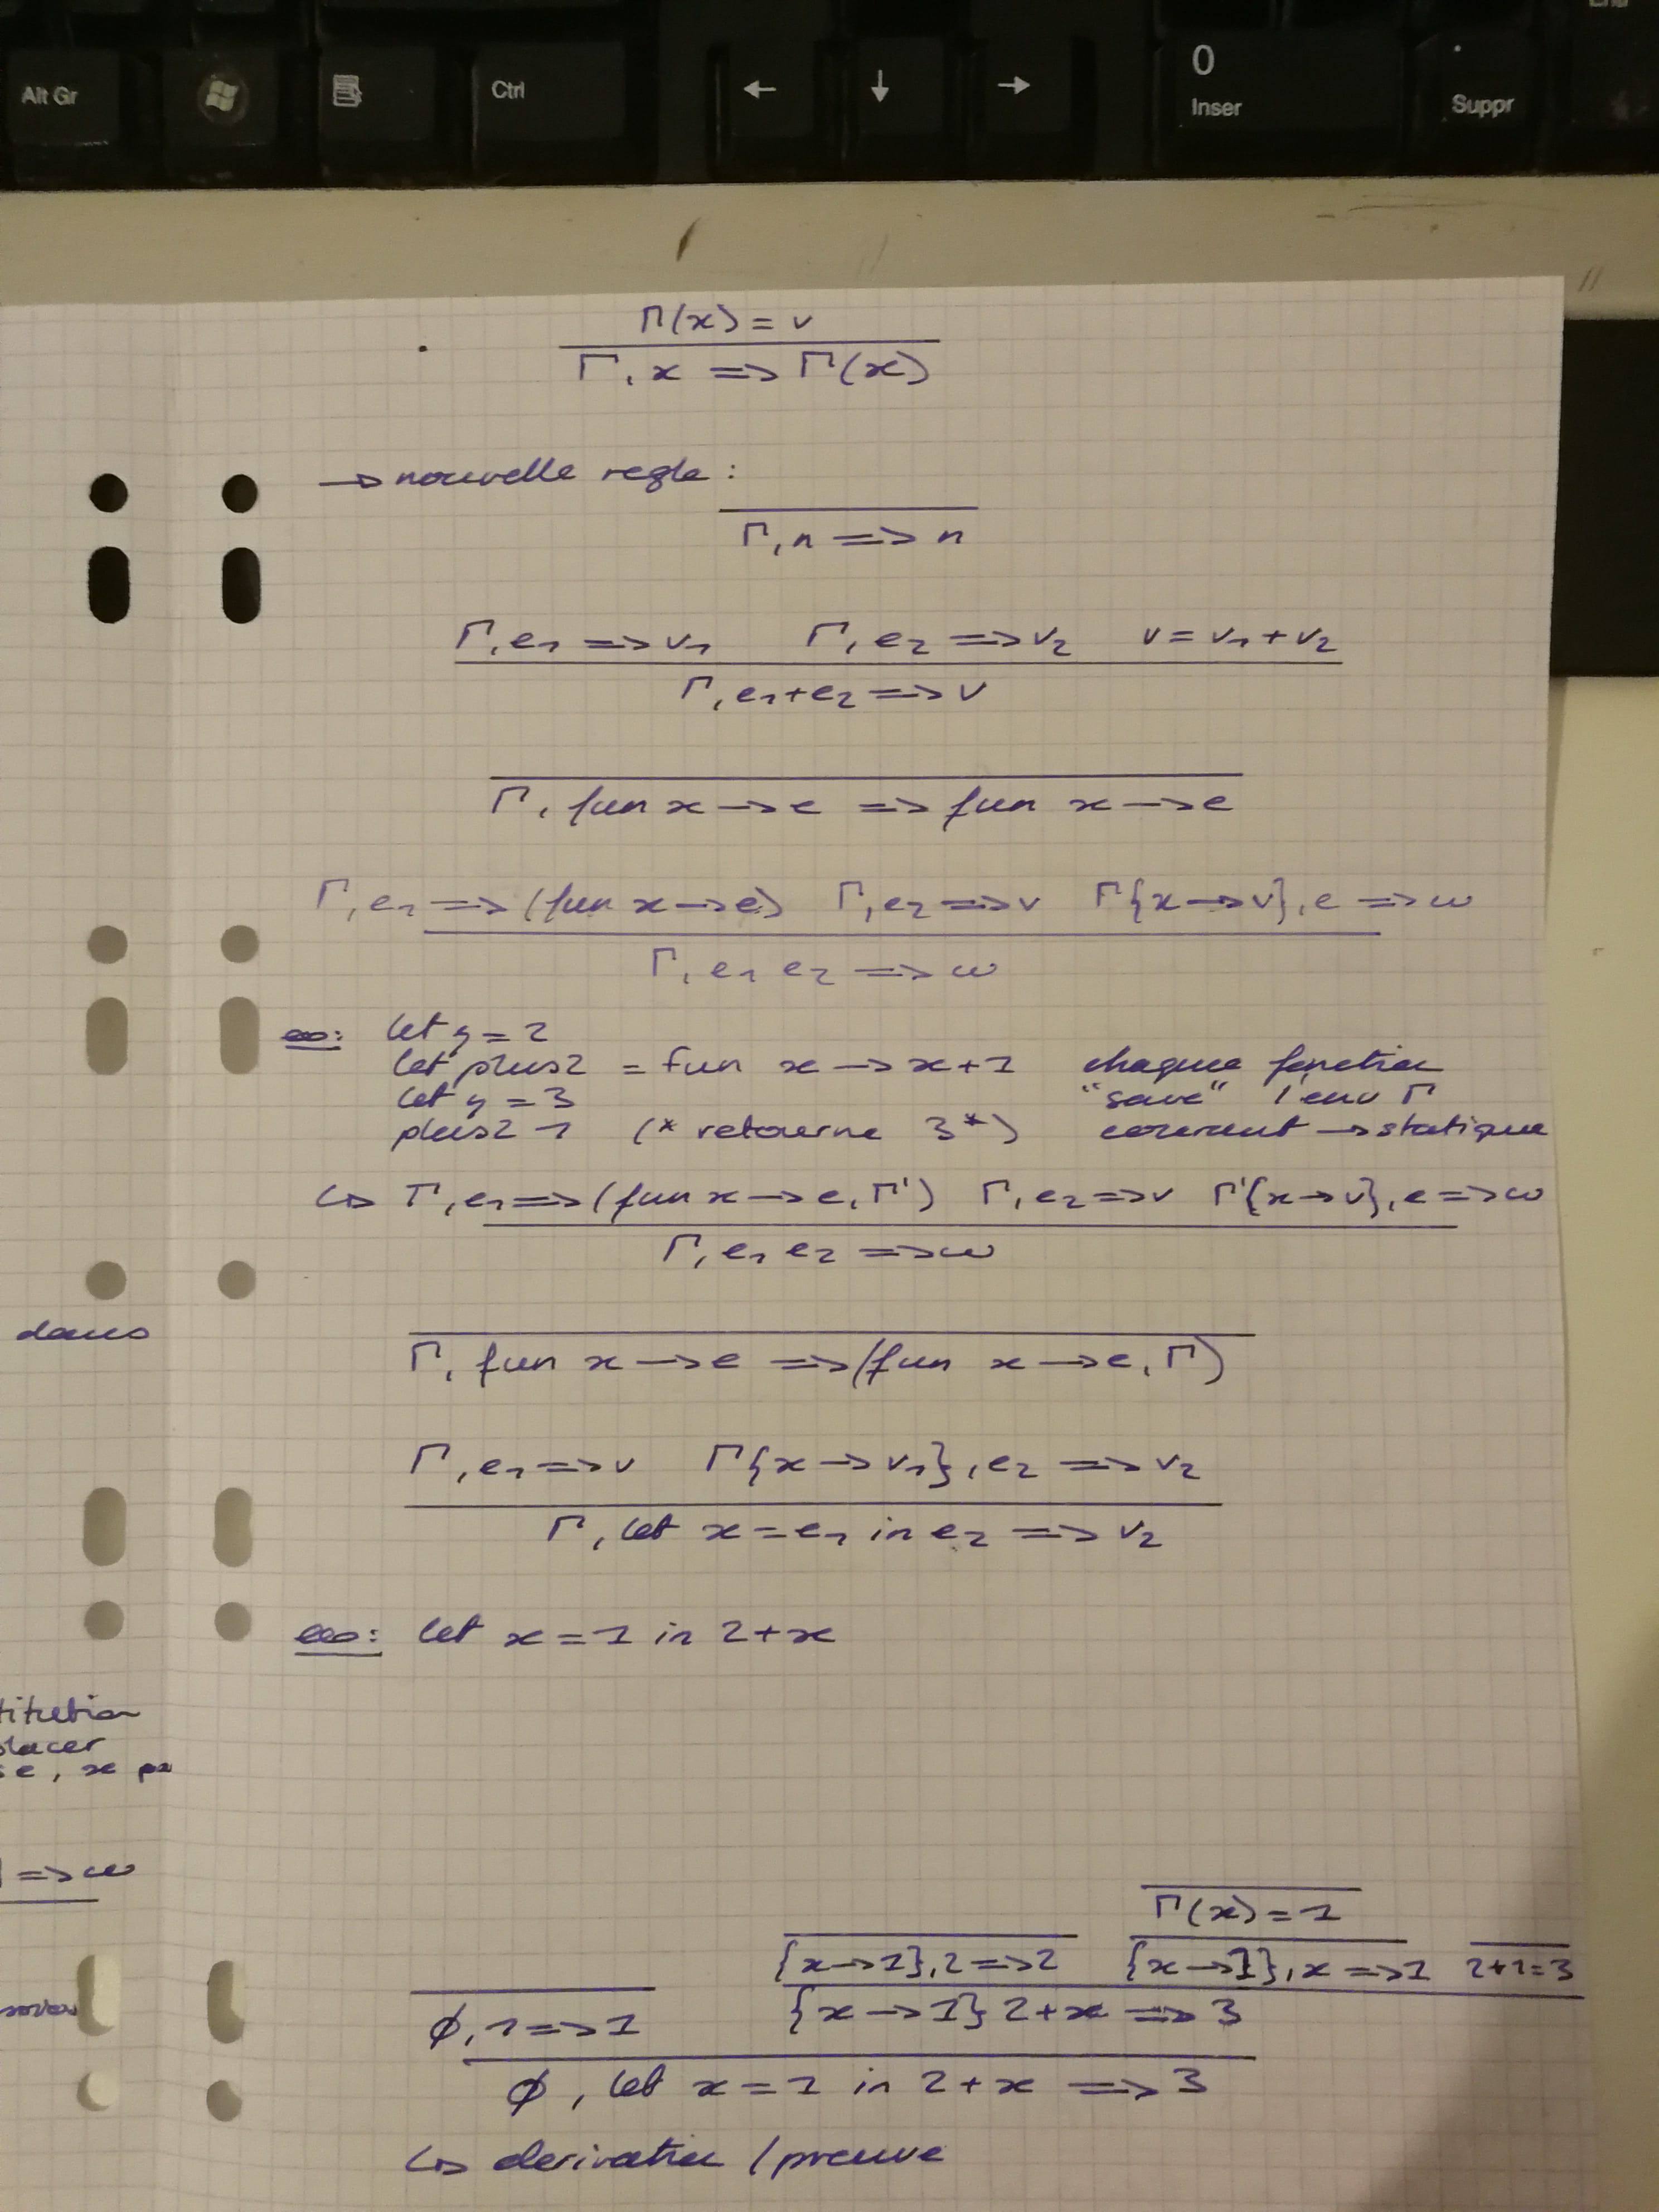 Alt Gr Ctrl ← ↓ → 0 Inser . Suppr
Γ(x) = v
Γ, x => Γ(x)
→ nouvelle regle :
Γ, n => n
Γ, e1 => v1 Γ, e2 => v2 v = v1 + v2
Γ, e1+e2 => v
Γ, fun x → e => fun x → e
Γ, e1 => (fun x → e) Γ, e2 => v Γ{x → v}, e => w
Γ, e1 e2 => w
ex: let y = 2
let plus2 = fun x → x+1 chaque fonction
let y = 3 "save" l'env Γ
plus2 1 (* retourne 3*) courant → statique
↳ Γ, e1 => (fun x → e, Γ') Γ, e2 => v Γ'{x → v}, e => w
Γ, e1 e2 => w
dans
Γ, fun x → e => (fun x → e, Γ)
Γ, e1 => v Γ{x → v1}, e2 => v2
Γ, let x = e1 in e2 => v2
ex: let x = 1 in 2+x
titution
placer
e, x pa
=> w
Γ(x) = 1
{x → 1}, 2 => 2 {x → 1}, x => 1 2+1=3
∅, 1 => 1 {x → 1} 2+x => 3
∅, let x = 1 in 2+x => 3
↳ derivation / preuve